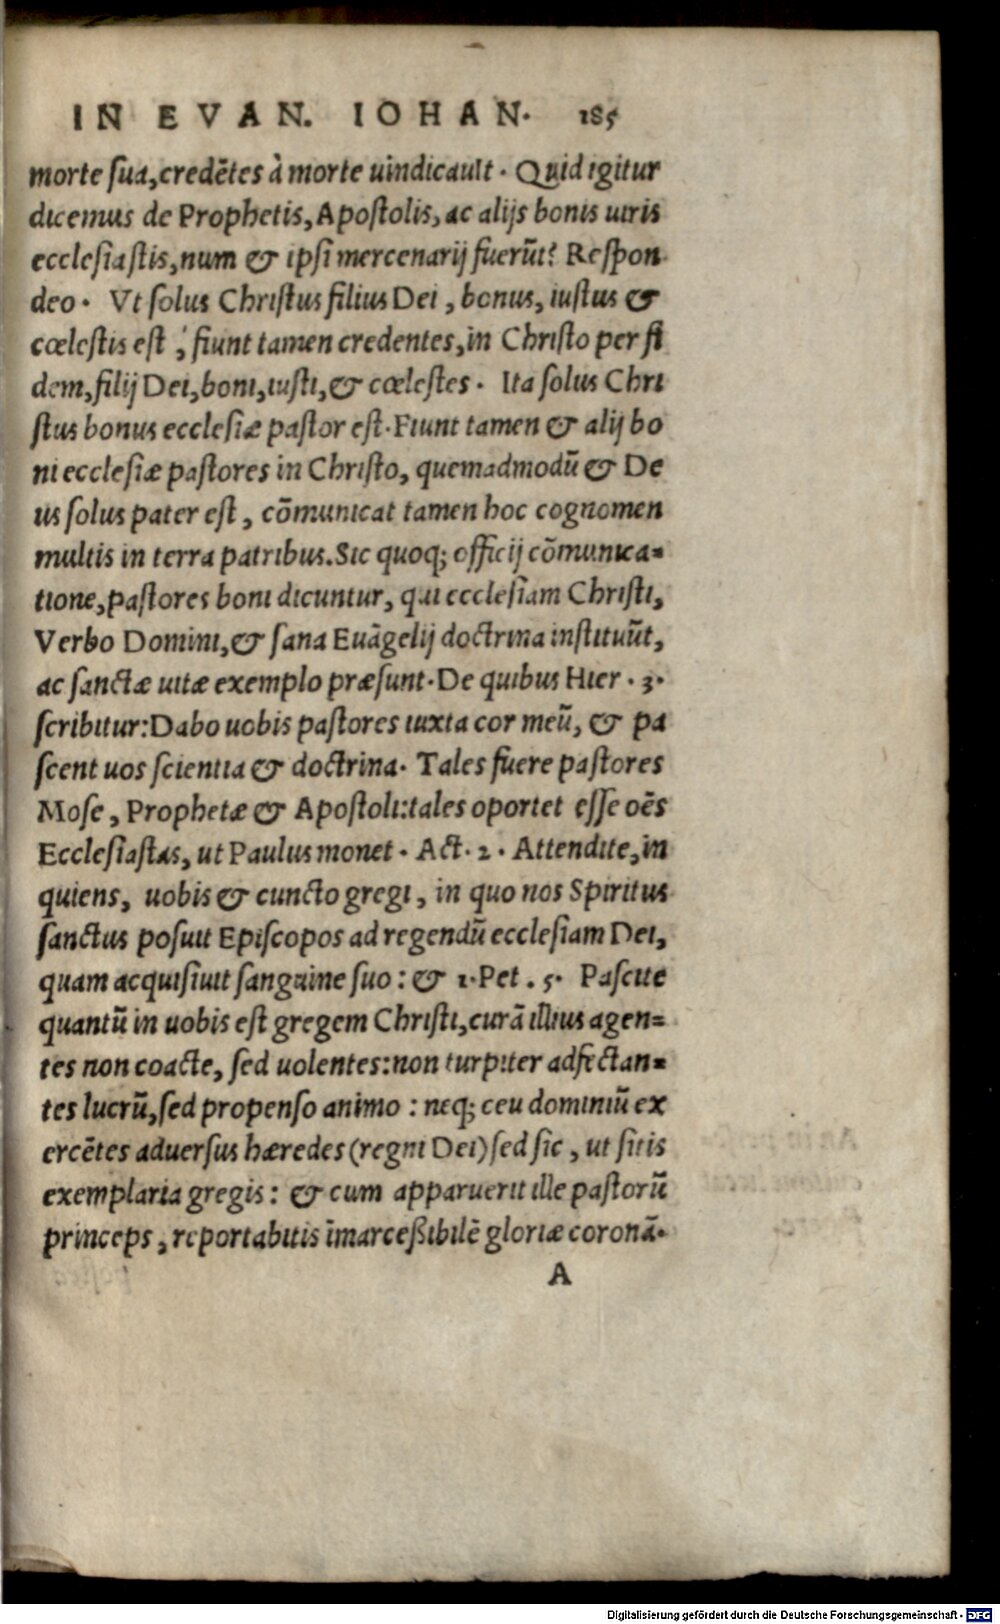 IN EVAN. IOHAN. 185
morte sua, credẽtes à morte uindicauit. Quid igitur
dicemus de Prophetis, Apostolis, ac alijs bonis uiris
ecclesiastis, num & ipsi mercenarij fuerũt? Respon
deo. Vt solus Christus filius Dei, bonus, iustus &
cœlestis est, fiunt tamen credentes, in Christo per fi
dem, filij Dei, boni, iusti, & cœlestes. Ita solus Chri
stus bonus ecclesiæ pastor est. Fiunt tamen & alij bo
ni ecclesiæ pastores in Christo, quemadmodũ & De
us solus pater est, cõmunicat tamen hoc cognomen
multis in terra patribus. Sic quoq; officij cõmunica=
tione, pastores boni dicuntur, qui ecclesiam Christi,
Verbo Domini, & sana Euãgelij doctrina instituũt,
ac sanctæ uitæ exemplo præsunt. De quibus Hier. 3.
scribitur: Dabo uobis pastores iuxta cor meũ, & pa
scent uos scientia & doctrina. Tales fuere pastores
Mose, Prophetæ & Apostoli: tales oportet esse oẽs
Ecclesiastas, ut Paulus monet. Act. 2. Attendite, in
quiens, uobis & cuncto gregi, in quo nos Spiritus
sanctus posuit Episcopos ad regendũ ecclesiam Dei,
quam acquisiuit sanguine suo: & 1. Pet. 5. Pascite
quantũ in uobis est gregem Christi, curã illius agen=
tes non coacte, sed uolentes: non turpiter adfectan=
tes lucrũ, sed propenso animo: neq; ceu dominiũ ex
ercẽtes aduersus hæredes (regni Dei) sed sic, ut sitis
exemplaria gregis: & cum apparuerit ille pastorũ
princeps, reportabitis ĩmarceßibilẽ gloriæ coronã.
A
Digitalisierung gefördert durch die Deutsche Forschungsgemeinschaft - DFG